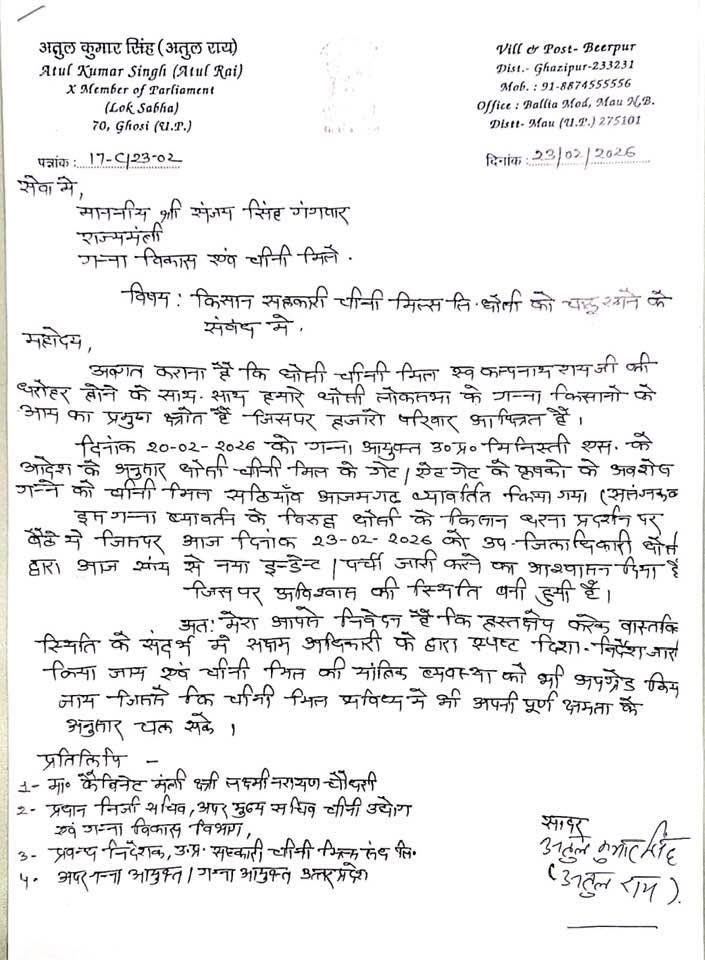 अतुल कुमार सिंह (अतुल राय)
Atul Kumar Singh (Atul Rai)
X Member of Parliament
(Lok Sabha)
70, Ghosi (U.P.)
Vill & Post- Beerpur
Dist.- Ghazipur-233231
Mob. : 91-8874555556
Office : Ballia Mod, Mau N.B.
Distt- Mau (U.P.) 275101
पत्रांक: 17-C/23-02
दिनांक: 23/02/2026
सेवा मे,
माननीय श्री संजय सिंह गंगवार
राज्यमंत्री
गन्ना विकास एवं चीनी मिले.
विषय: किसान सहकारी चीनी मिल्स लि. घोसी को चालू रखने के
संबंध मे.
महोदय,
अवगत कराना है कि घोसी चीनी मिल स्व कल्पनाथ राय जी की
धरोहर होने के साथ-साथ हमारे घोसी लोकसभा के गन्ना किसानो के
आय का प्रमुख श्रोत है जिसपर हजारो परिवार आश्रित है।
दिनांक 20-02-2026 को गन्ना आयुक्त उ०प्र० मिनिस्ती एस. के
आदेश के अनुसार घोसी चीनी मिल के गेट/ऐट गेट के कृषको के अवशेष
गन्ने को चीनी मिल सठियाँव आजमगढ़ व्यावर्तित किया गया (संलग्नक
इस गन्ना व्यावर्तन के विरुद्ध घोसी के किसान धरना प्रदर्शन पर
बैठे थे जिसपर आज दिनांक 23-02-2026 को उप-जिलाधिकारी घोसी
द्वारा आज सायं से नया इन्डेन्ट/पर्ची जारी करने का आश्वासन दिया है
जिस पर अविश्वास की स्थिति बनी हुयी है।
अतः मेरा आपसे निवेदन है कि हस्तक्षेप करके वास्तवि
स्थिति के संदर्भ मे सक्षम अधिकारी के द्वारा स्पष्ट दिशा-निर्देश जारी
किया जाय एवं चीनी मिल की यांत्रिक व्यवस्था को भी अपग्रेड किय
जाय जिससे कि चीनी मिल भविष्य मे भी अपनी पूर्ण क्षमता के
अनुसार चल सके।
प्रतिलिपि -
1- मा० कैबिनेट मंत्री श्री लक्ष्मी नारायण चौधरी
2- प्रधान निजी सचिव, अपर मुख्य सचिव चीनी उद्योग
एवं गन्ना विकास विभाग,
3- प्रबन्ध निदेशक, उ.प्र. सहकारी चीनी मिल्स संघ लि.
4- अपर गन्ना आयुक्त/गन्ना आयुक्त उत्तर प्रदेश
सादर
अतुल कुमार सिंह
(अतुल राय).